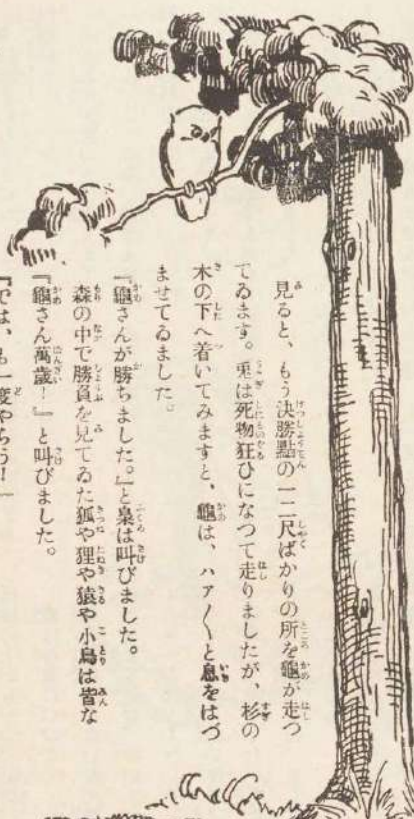 見ると、もう決勝點の一二尺ばかりの所を龜が走つ
てゐます。兎は死物狂ひになつて走りましたが、杉の
木の下へ着いてみますと、龜は、ハア〳〵と息をはづ
ませてゐました。
『龜さんが勝ちました。』と梟は叫びました。
森の中で勝負を見てゐた狐や狸や猿や小鳥は皆な
『龜さん萬歲！』と叫びました。
『では、も一度やらう！』